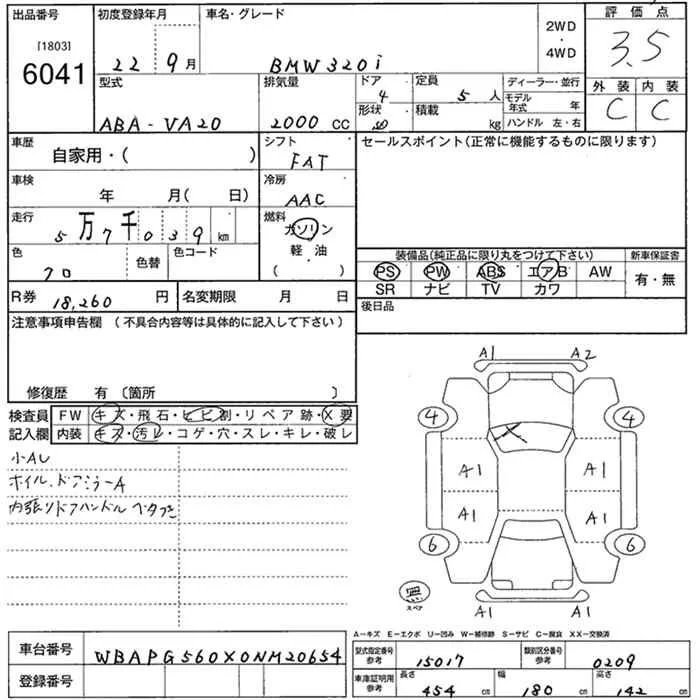 出品番号
[1803]
6041
初度登録年月
22 9月
車名・グレード
BMW 320i
2WD
・
4WD
評価点
3.5
外装 内装
C C
型式
ABA-VA20
排気量
2000 CC
ドア
4
形状
定員
5 人
積載
kg
ディーラー・並行
モデル年式 年
ハンドル 左・右
車歴
自家用・( )
シフト
FAT
セールスポイント(正常に機能するものに限ります)
車検
年 月( 日)
冷房
AAC
走行
5万7千039km
燃料
ガソリン
軽・油
( )
色
クロ
色替
色コード
装備品(純正品に限り丸をつけて下さい)
新車保証書
PS PW ABS エアB AW
有・無
SR ナビ TV カワ
R券 18,260 円
名変期限 月 日
後日品
注意事項申告欄 (不具合内容等は具体的に記入して下さい)
修復歴 有 〔箇所 〕
検査員
記入欄
FW キズ・飛石・ヒビ割・リペア跡・X要
内装 キズ・汚レ・コゲ・穴・スレ・キレ・破レ
小AU
ホイル.ドアミラーA
内張りドアハンドル ベタつき
A1 A2
4 4
X
A1 A1
A1 A1
6 6
無
スペア
A1 A1
A－キズ E－エクボ U－凹み W－補修跡 S－サビ C－腐食 XX－交換済
車台番号
WBAPG560X0NM20654
登録番号
型式指定番号
参考
15017
類別区分番号
参考
0209
車庫証明用
参考
長さ
454 cm
幅
180 cm
高さ
142 cm